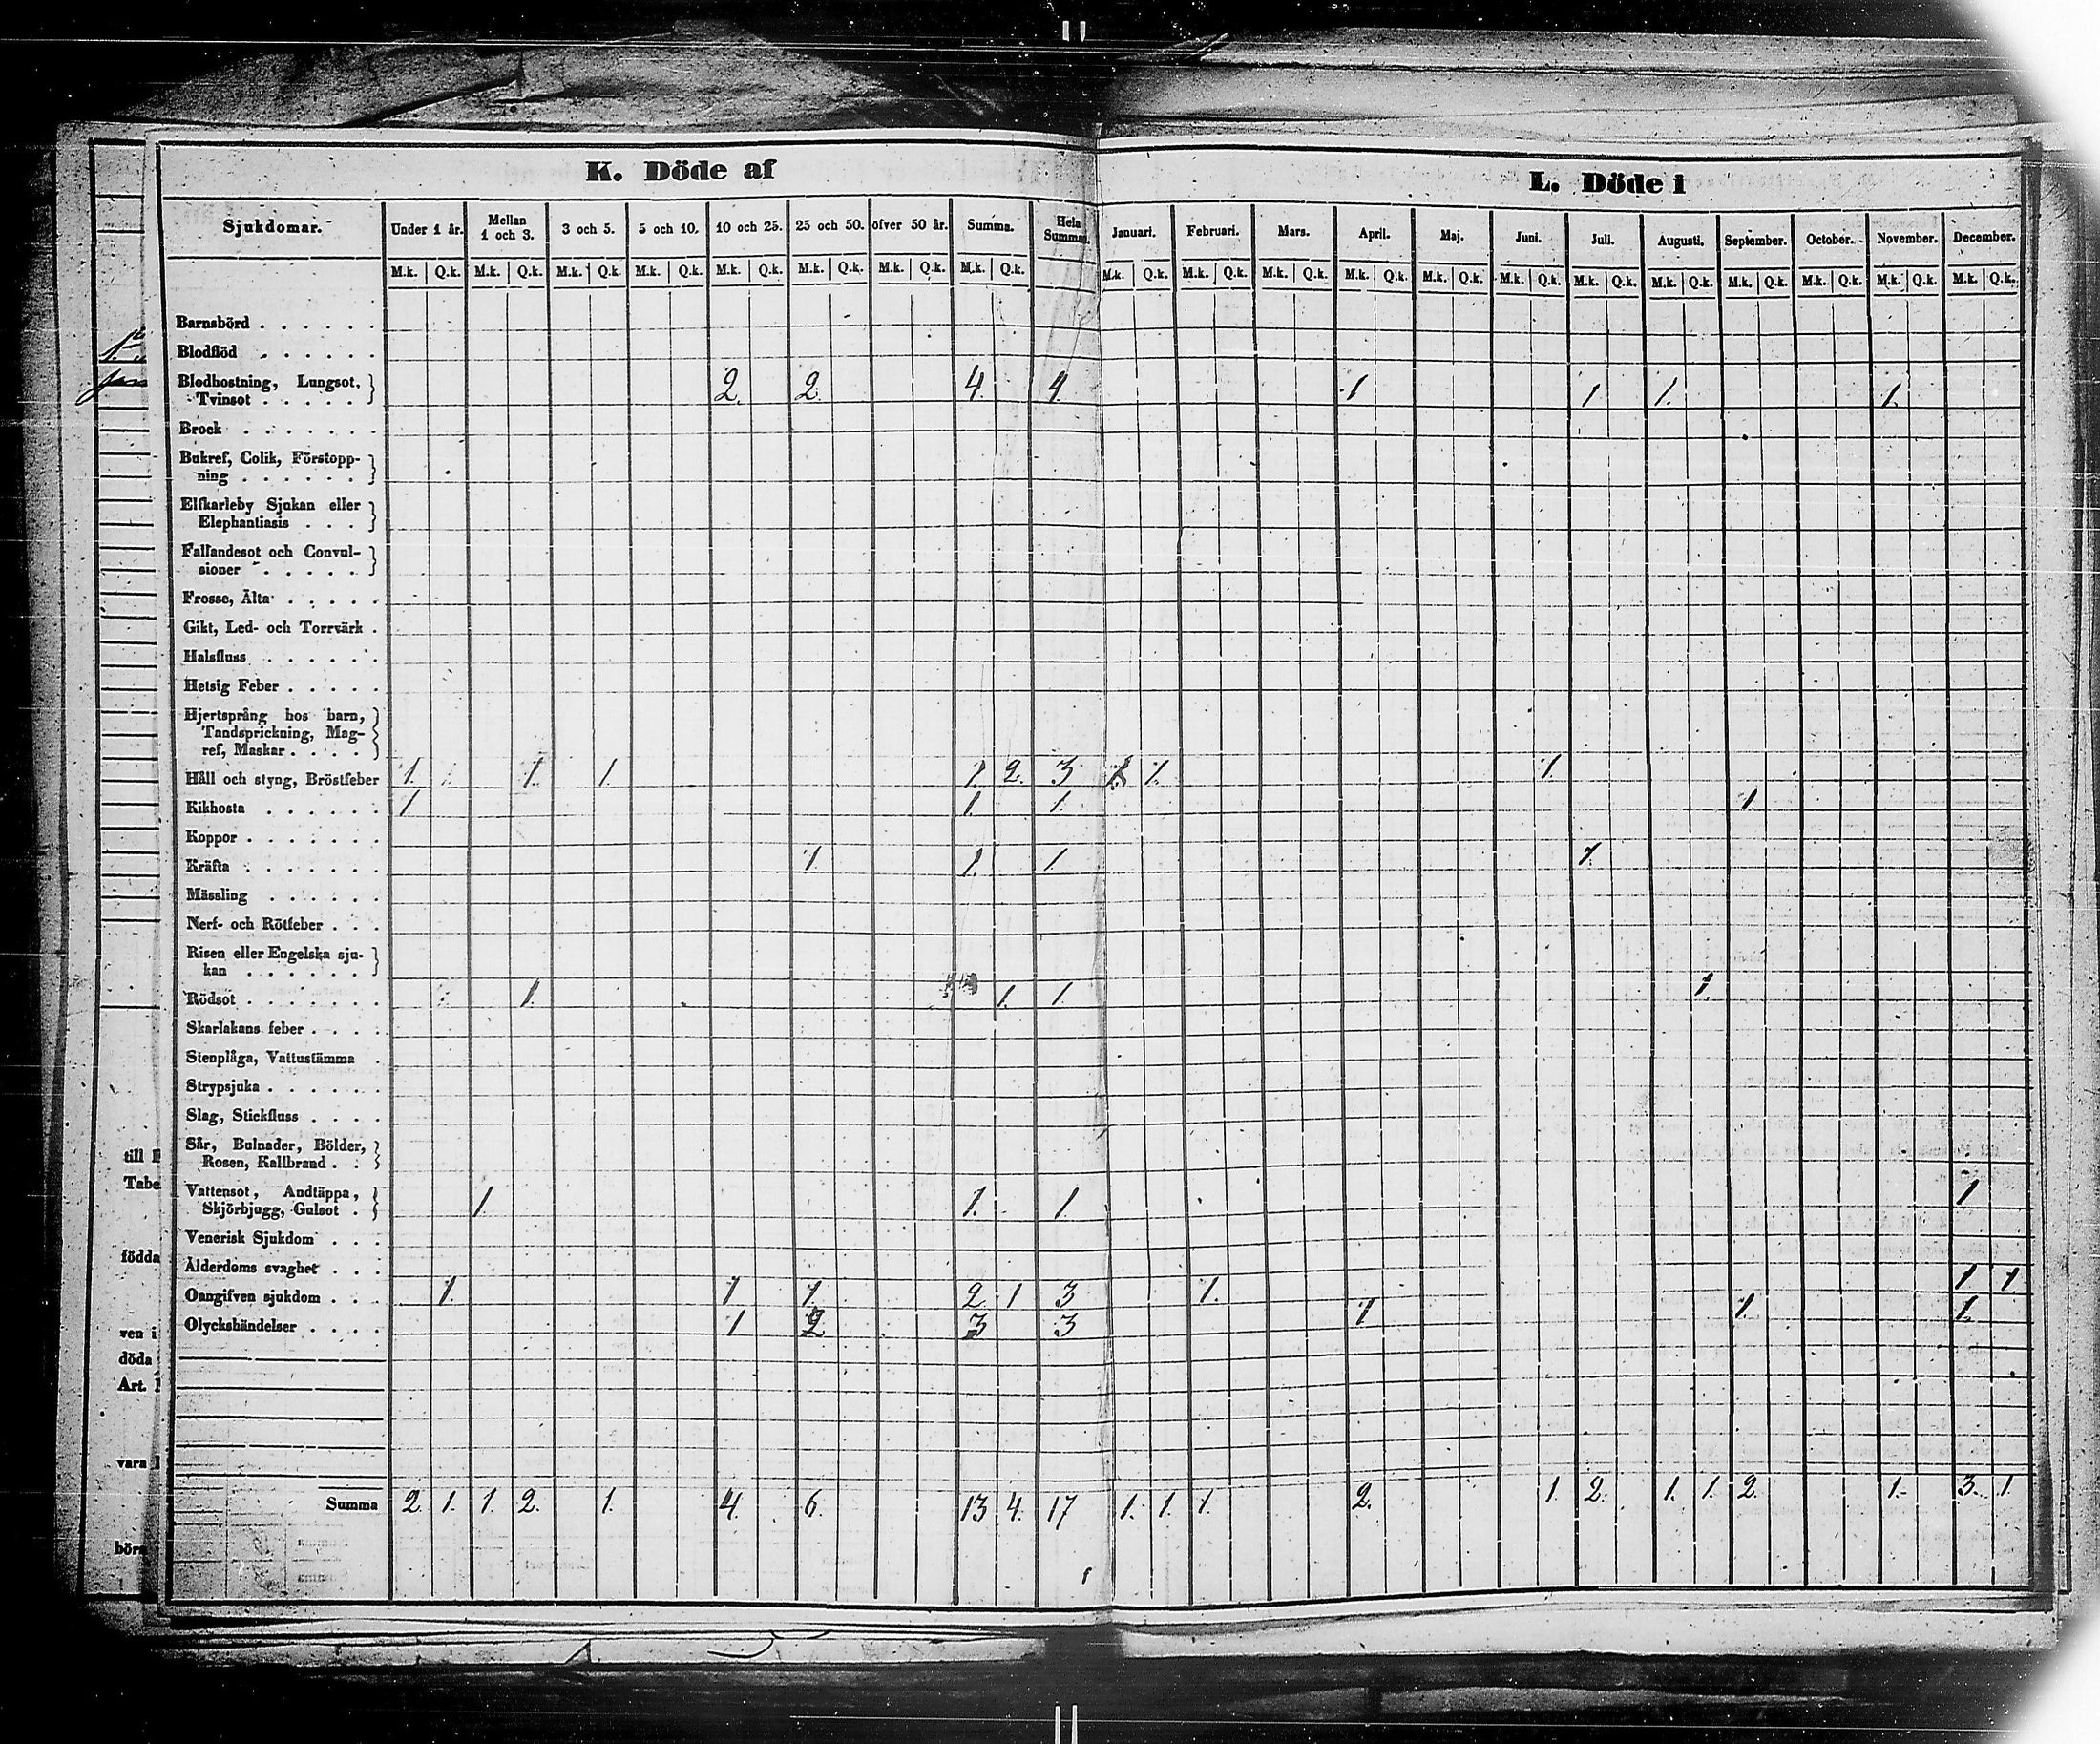 K. Döde af
L. Döde i
Sjukdomar. Under 1 år. Mellan 1 och 3. 3 och 5. 5 och 10. 10 och 25. 25 och 50. öfver 50 år. Summa. Hela Summan. Januari. Februari. Mars. April. Maj. Juni. Juli. Augusti. September. October. November. December.
M.k. Q.k. M.k. Q.k. M.k. Q.k. M.k. Q.k. M.k. Q.k. M.k. Q.k. M.k. Q.k. M.k. Q.k. M.k. Q.k. M.k. Q.k. M.k. Q.k. M.k. Q.k. M.k. Q.k. M.k. Q.k. M.k. Q.k. M.k. Q.k. M.k. Q.k. M.k. Q.k. M.k. Q.k. M.k. Q.k.
Barnsbörd
Blodflöd
Blodhostning, Lungsot,
Tvinsot 2. 2. 4. 4 1 1 1. 1.
Brock
Bukref, Colik, Förstopp-
ning
Elfkarleby Sjukan eller
Elephantiasis
Fallandesot och Convul-
sioner
Frosse, Älta
Gikt, Led- och Torrvärk
Halsfluss
Hetsig Feber
Hjertsprång hos barn,
Tandsprickning, Mag-
ref, Maskar
Håll och styng, Bröstfeber 1. 1. 1. 1. 2. 3 1. 1. 1.
Kikhosta 1 1. 1. 1.
Koppor
Kräfta 1. 1. 1. 1.
Mässling
Nerf- och Rötfeber
Risen eller Engelska sju-
kan
Rödsot 1. 1. 1. 1.
Skarlakans feber
Stenplåga, Vattustämma
Strypsjuka
Slag, Stickfluss
Sår, Bulnader, Bölder,
Rosen, Kallbrand
Vattensot, Andtäppa,
Skjörbjugg, Gulsot 1 1. 1. 1
Venerisk Sjukdom
Ålderdoms svaghet
Oangifven sjukdom 1. 1 1. 2 1 3 1. 1. 1
Olyckshändelser 1 2 3 3 1 1. 1.
Summa 2 1. 1. 2. 1. 4. 6. 13 4. 17 1. 1. 1. 2. 1. 2. 1. 1. 2. 1. 3. 1
till
Tabe
födda
ven i
döda
Art.
vara
börs